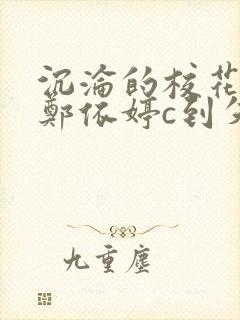 沉沦的校花
鄭依婷c到
九重塵